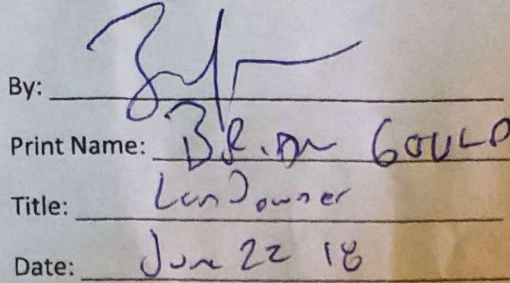 By:
Print Name: BRIAN GOULD
Title: LanDowner
Date: June 22 18